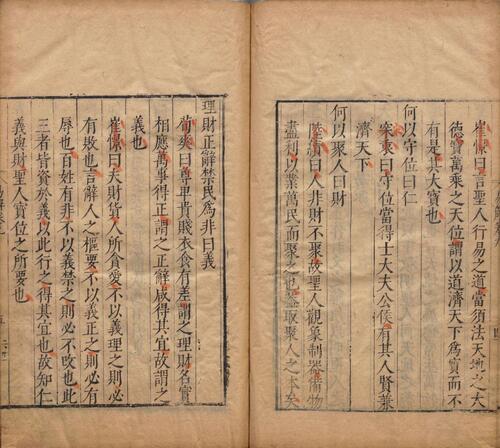 崔憬曰言聖人行易之道當須法天地之大
德寶萬乘之天位謂以道濟天下為寶而不
有是其大寶也
何以守位曰仁
宋衷曰守位當得士大夫公侯有其人賢兼
濟天下
何以聚人曰財
陸績曰人非財不聚故聖人觀象制器備物
盡利以業萬民而聚之也蓋取聚人之本矣
理財正辭禁民為非曰義
荀爽曰尊卑貴賤衣食有差謂之理財名實
相應萬事得正謂之正辭咸得其宜故謂之
義也
崔憬曰夫財貨人所貪愛不以義理之則必
有敗也言辭人之樞要不以義正之則必有
辱也百姓有非不以義禁之則必不改也此
三者皆資於義以此行之得其宜也故知仁
義與財聖人寶位之所要也